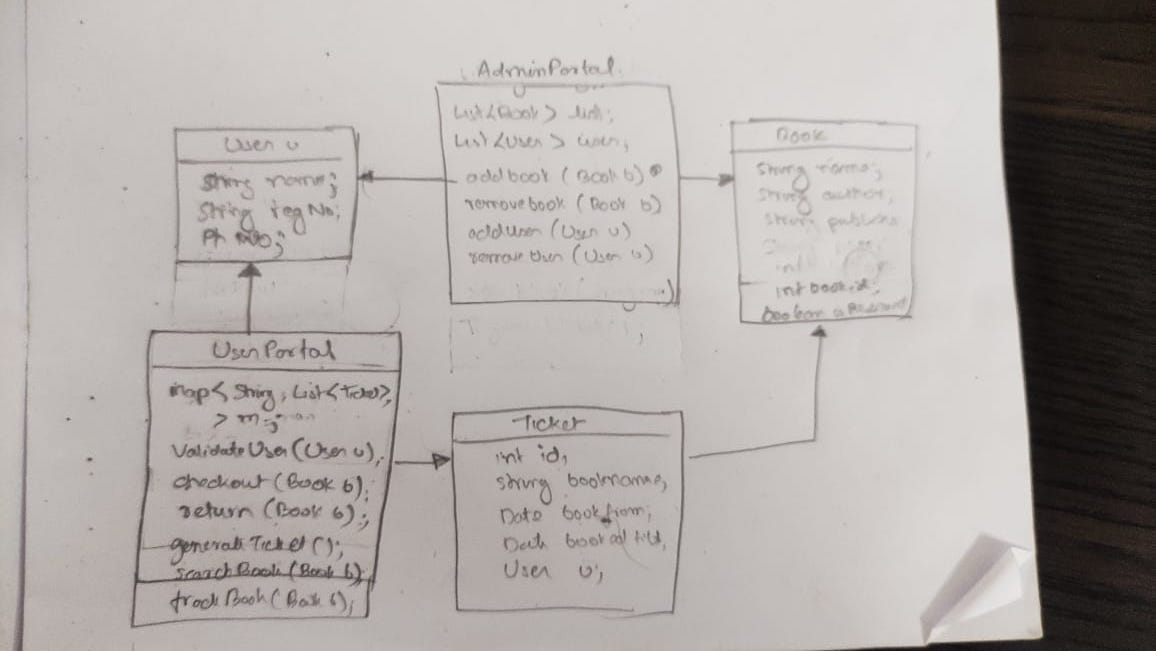 AdminPortal
List<Book> list;
List<User> user;
addbook (Book b)
removebook (Book b)
addUser (User u)
remove User (User u)
User u
String name;
String regNo;
Ph No;
Book
String name;
String author;
String
int
int book id;
boolean
UserPortal
map<String, List<Ticket>,
> m;
ValidateUser(User u);
checkout (Book b);
return (Book b);
generateTicket();
searchBook(Book b)
trackBook(Book b);
Ticket
int id,
String bookname,
Date book from;
Date booked till,
User u,